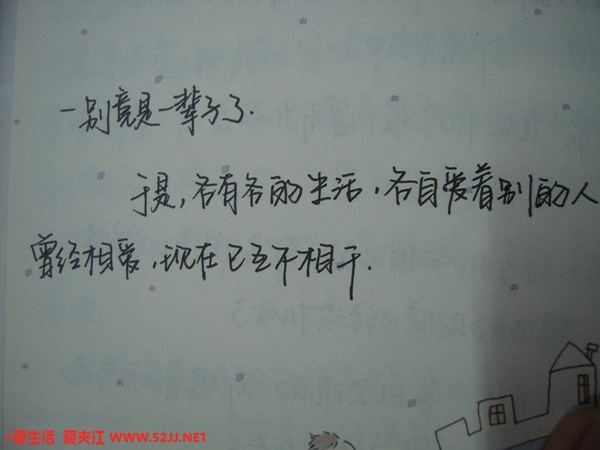 一别竟是一辈子了.
于是,各有各的生活,各自爱着别的人
曾经相爱,现在已互不相干.
•爱生活 爱夹江 WWW.52JJ.NET